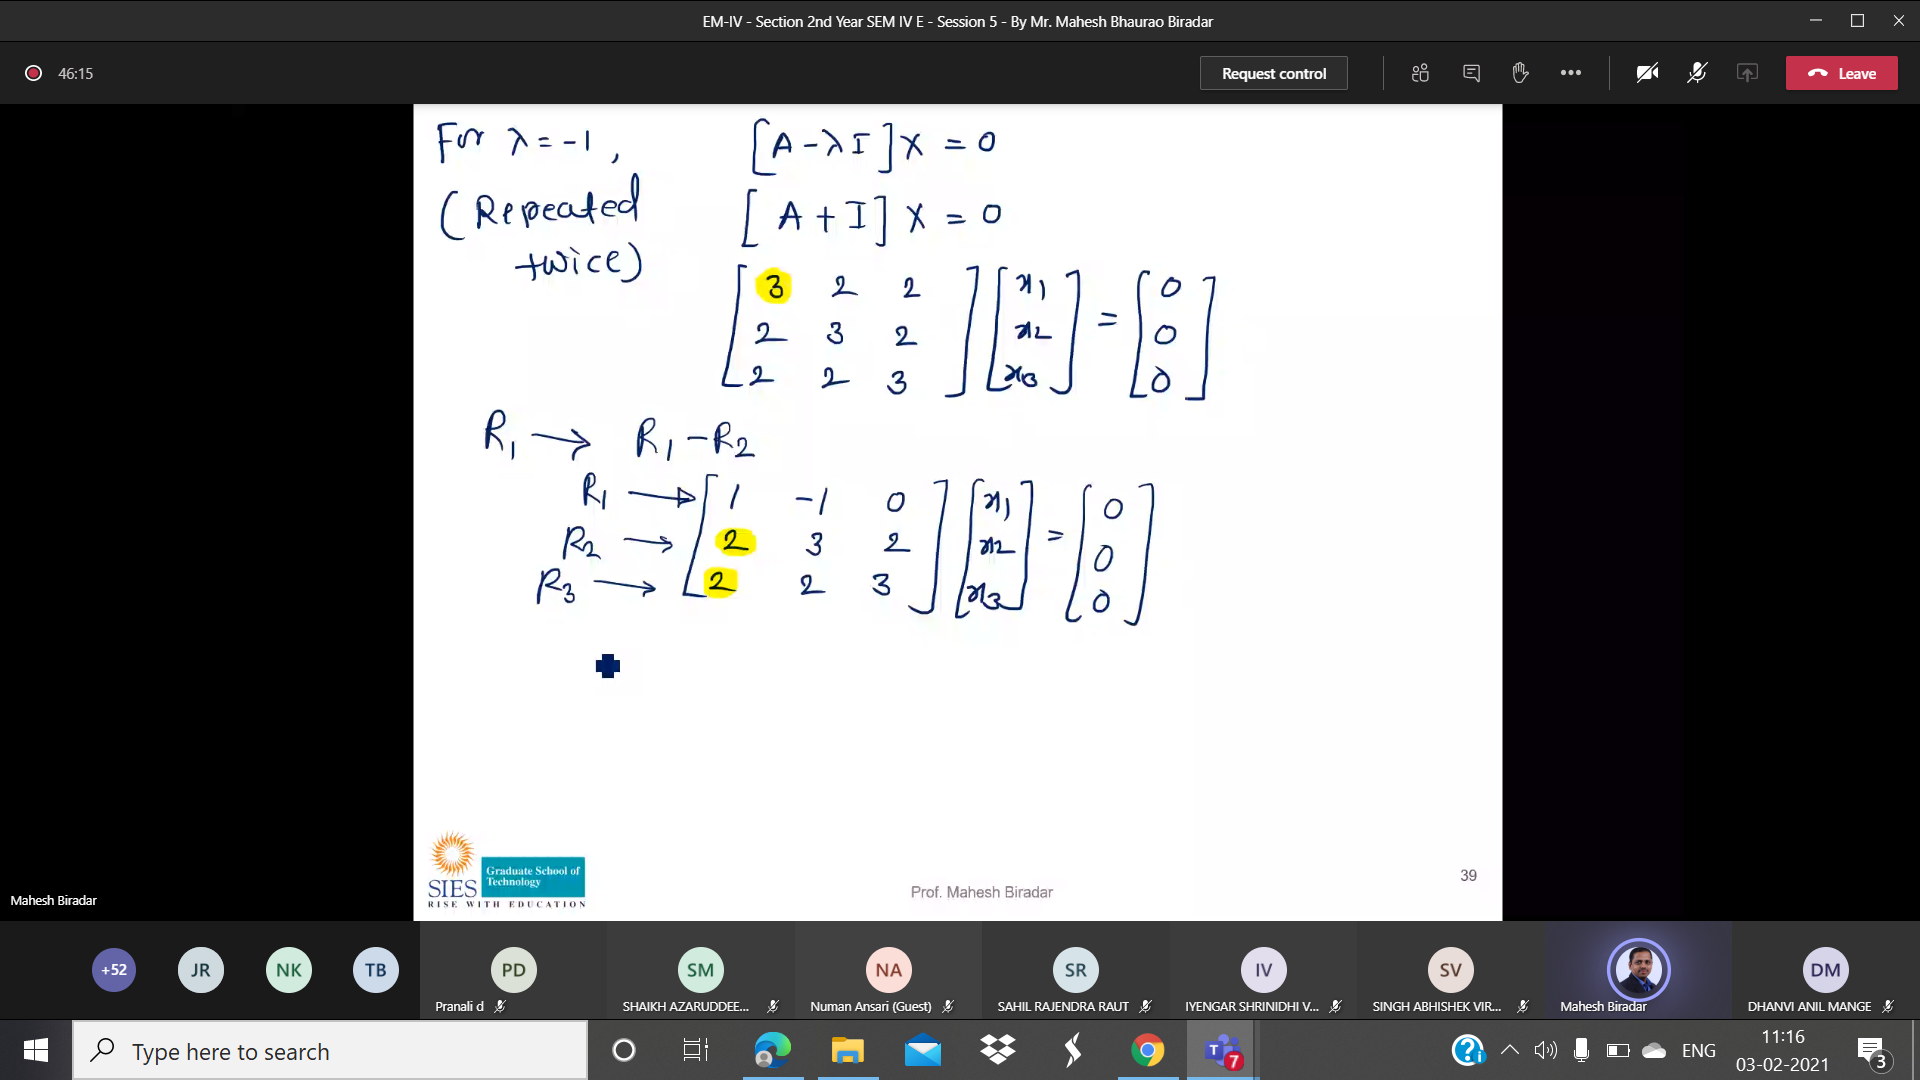 EM-IV - Section 2nd Year SEM IV E - Session 5 - By Mr. Mahesh Bhaurao Biradar
46:15
Request control
Leave
For λ = -1, [A - λI]X = 0
(Repeated twice) [A + I]X = 0
[3 2 2] [x1] = [0]
[2 3 2] [x2] [0]
[2 2 3] [x3] [0]
R1 → R1 - R2
R1 → [1 -1 0] [x1] [0]
R2 → [2 3 2] [x2] = [0]
R3 → [2 2 3] [x3] [0]
SIES Graduate School of Technology
RISE WITH EDUCATION
Prof. Mahesh Biradar
39
Mahesh Biradar
+52 JR NK TB PD SM NA SR IV SV DM
Pranali d SHAIKH AZARUDDEE... Numan Ansari (Guest) SAHIL RAJENDRA RAUT IYENGAR SHRINIDHI V... SINGH ABHISHEK VIR... Mahesh Biradar DHANVI ANIL MANGE
Type here to search
T 7
ENG
11:16
03-02-2021
3